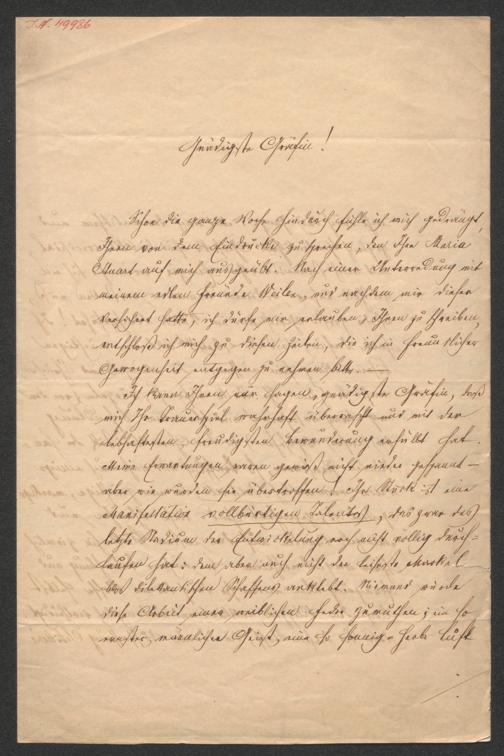 I.N. 49986
Gnädigste Gräfin!
Schon die ganze Woche hindurch fühle ich mich gedrängt,
Ihnen von dem Eindrucke zu sprechen, den Ihre Maria
Stuart auf mich ausgeübt. Nach einer Unterredung mit
meinem edlen Freunde Weilen, und nachdem mir dieser
versichert hatte, ich dürfe mir erlauben, Ihnen zu schreiben,
entschloß ich mich zu diesen Zeilen, die ich in freundlicher
Gewogenheit entgegen zu nehmen bitte. —
Ich kann Ihnen nur sagen, gnädigste Gräfin, dass
mich Ihr Trauerspiel wahrhaft überrascht und mit der
lebhaftesten, freudigsten Bewunderung erfüllt hat.
Meine Erwartungen waren gewiß nicht nieder gespannt —
aber wie wurden sie übertroffen! Ihr Stück ist eine
Manifestation vollbürtigen Talentes, das zwar das
letzte Stadium der Entwickelung noch nicht völlig durch-
laufen hat, dem aber auch nicht der leiseste Mackel
des dilettantischen Schaffens anklebt. Niemand würde
diese Arbeit einer weiblichen Feder zumuthen; ein so
ernster, männlicher Geist, eine so sonnig-herbe Luft